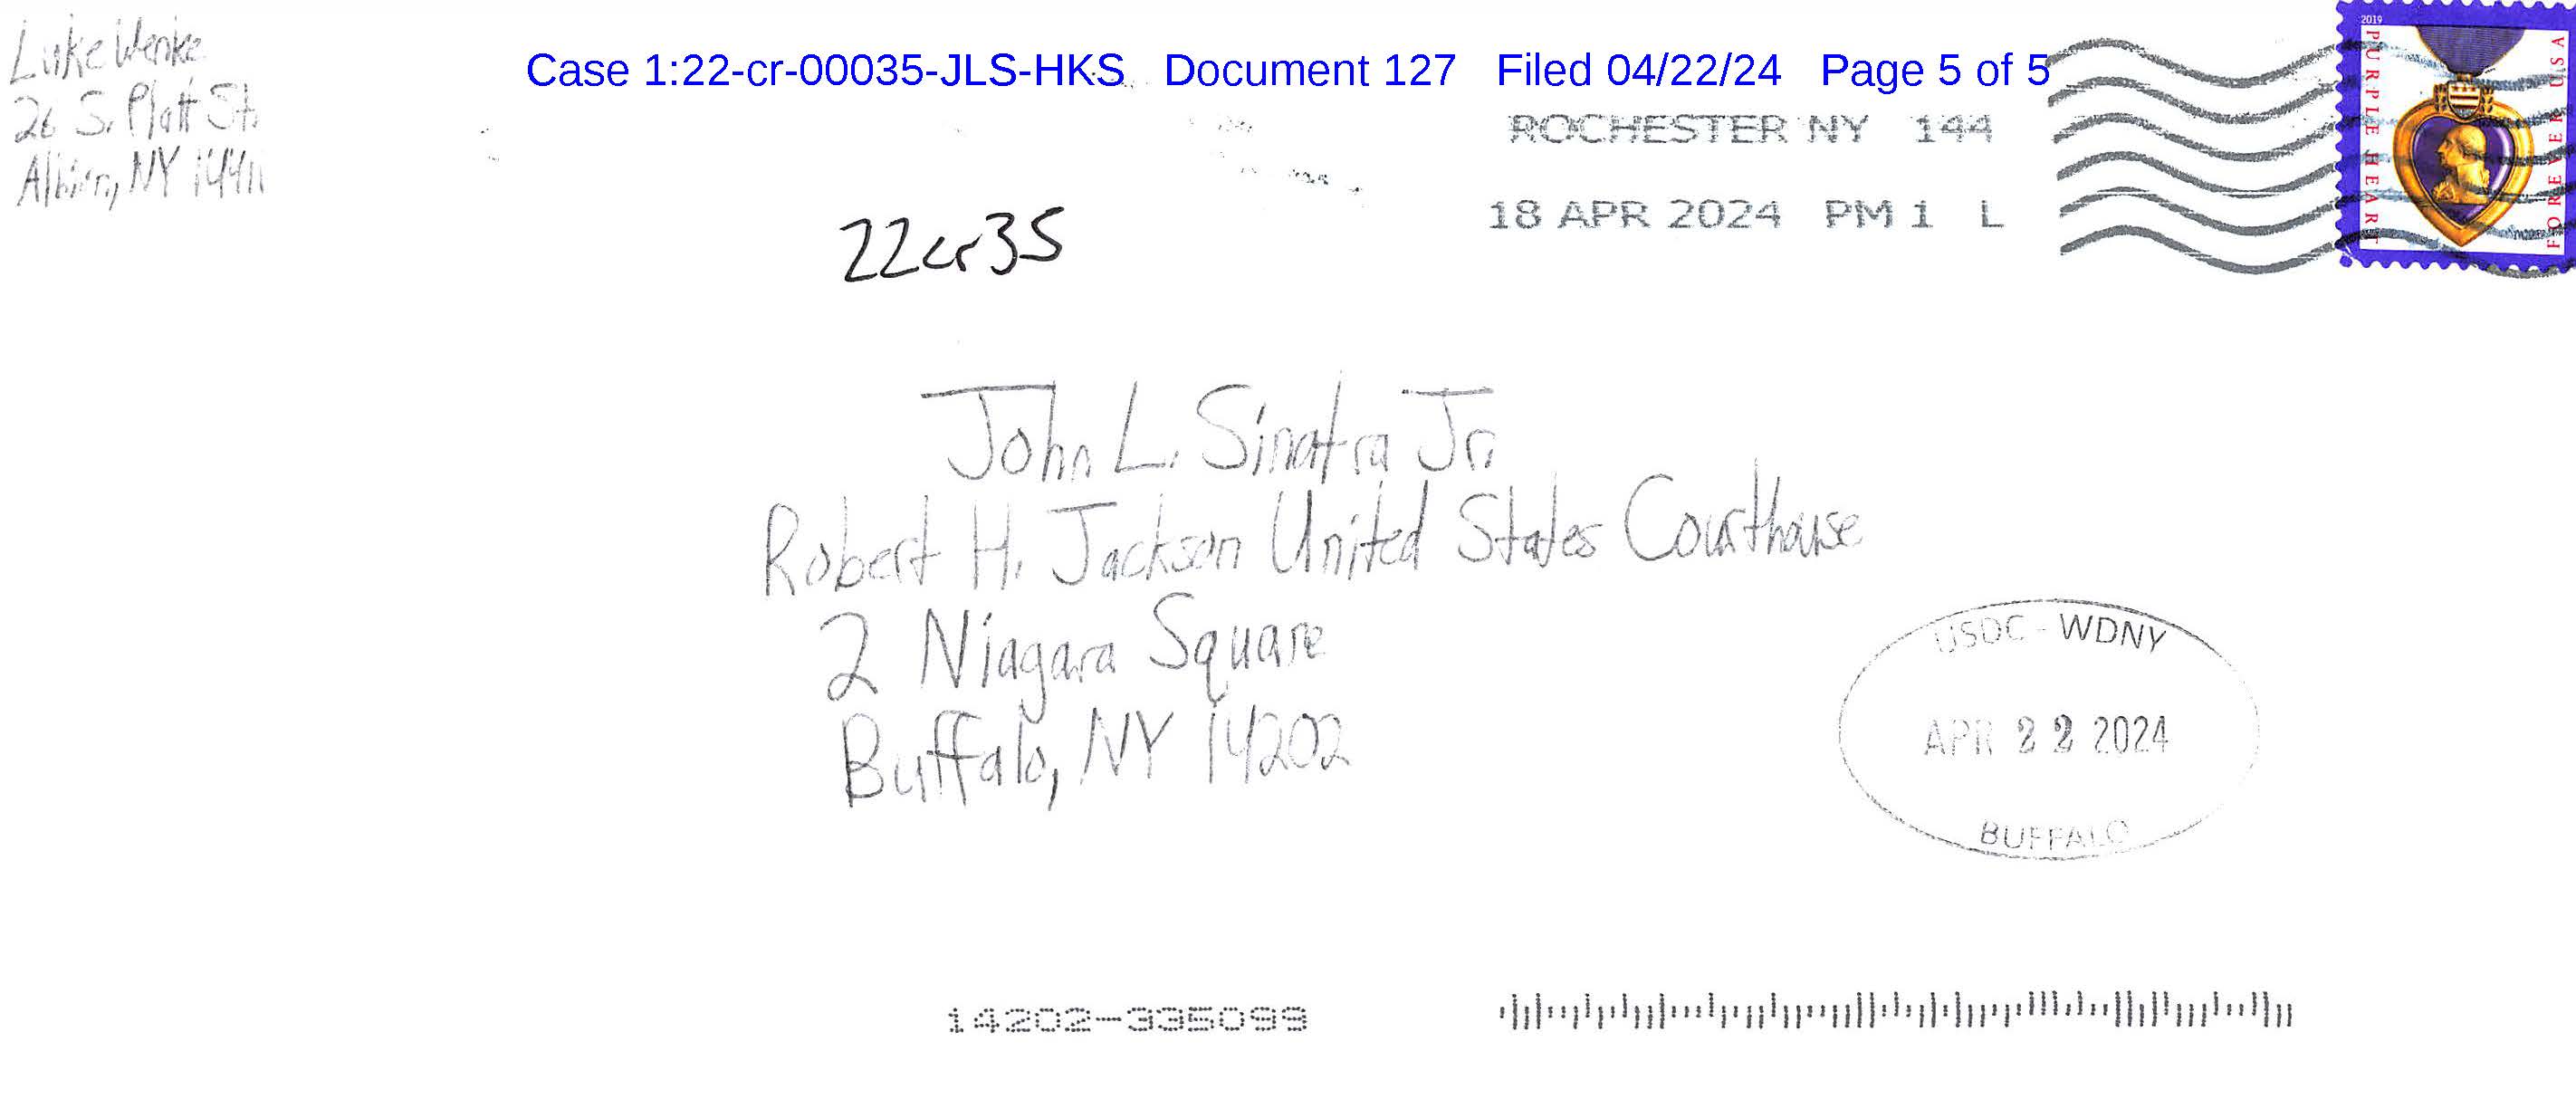 Luke Wenke
26 S. Platt St.
Albion, NY 14411
Case 1:22-cr-00035-JLS-HKS Document 127 Filed 04/22/24 Page 5 of 5
ROCHESTER NY 144
18 APR 2024 PM 1 L
2019
PURPLE HEART
FOREVER USA
22cr35
John L. Sinatra Jr.
Robert H. Jackson United States Courthouse
2 Niagara Square
Buffalo, NY 14202
USDC - WDNY
APR 22 2024
BUFFALO
14202-335099